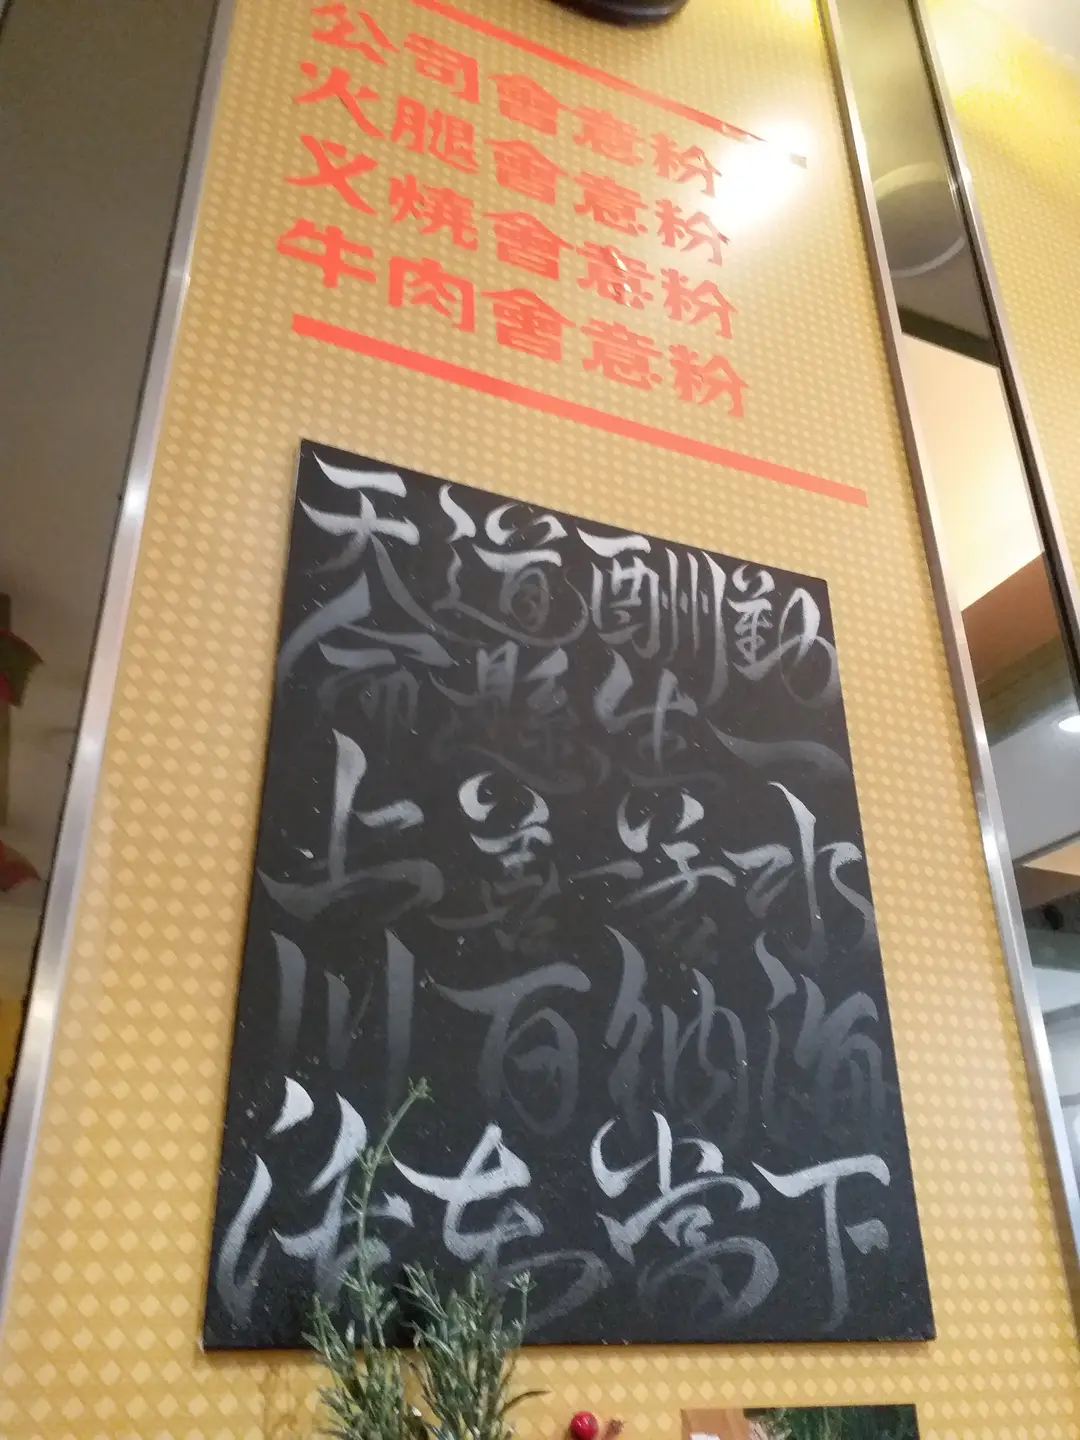 公司會意粉
火腿會意粉
叉燒會意粉
牛肉會意粉
天道酬勤
命懸生一
上善若水
川百納海
活在當下